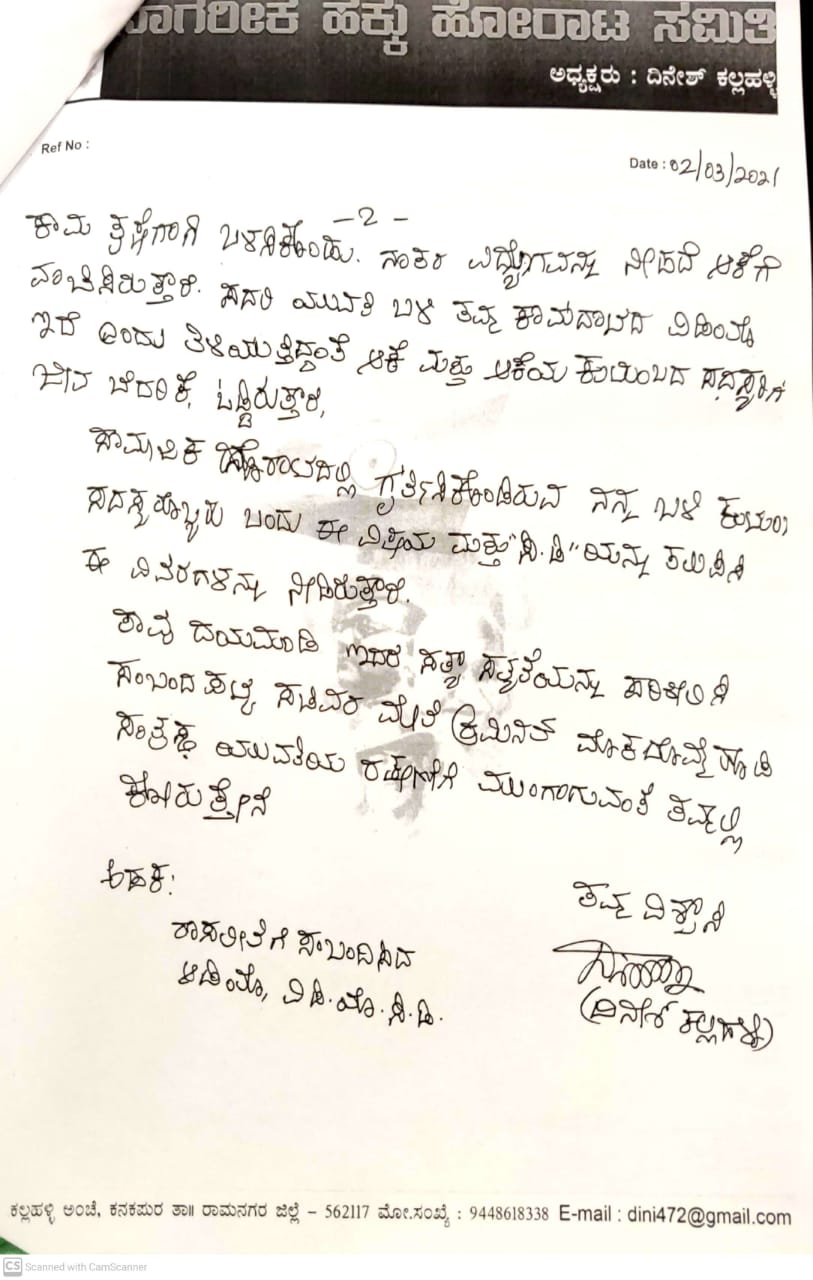 ನಾಗರೀಕ ಹಕ್ಕು ಹೋರಾಟ ಸಮಿತಿ
ಅಧ್ಯಕ್ಷರು : ದಿನೇಶ್ ಕಲ್ಲಹಳ್ಳಿ
Ref No :
Date : 02/03/2021
-2-
ಕಾಮ ತೃಷೆಗಾಗಿ ಬಳಸಿಕೊಂಡು. ನಂತರ ಉದ್ಯೋಗವನ್ನು ನೀಡದೆ ಆಕೆಗೆ
ವಂಚಿಸಿರುತ್ತಾರೆ. ಸದರಿ ಯುವತಿ ಬಳಿ ತಮ್ಮ ಕಾಮದಾಟದ ವಿಡಿಯೊ
ಇದೆ ಎಂದು ತಿಳಿಯುತ್ತಿದ್ದಂತೆ ಆಕೆ ಮತ್ತು ಆಕೆಯ ಕುಟುಂಬದ ಸದಸ್ಯರಿಗೆ
ಜೀವ ಬೆದರಿಕೆ, ಒಡ್ಡಿರುತ್ತಾರೆ,
ಸಾಮಾಜಿಕ ಹೋರಾಟದಲ್ಲಿ ಗುರ್ತಿಸಿಕೊಂಡಿರುವ ನನ್ನ ಬಳಿ ಕುಟುಂಬ
ಸದಸ್ಯರೊಬ್ಬರು ಬಂದು ಈ ವಿಷಯ ಮತ್ತು "ಸಿ.ಡಿ" ಯನ್ನು ತಲುಪಿಸಿ
ಈ ವಿವರಗಳನ್ನು ನೀಡಿರುತ್ತಾರೆ.
ತಾವು ದಯಮಾಡಿ ಇದರ ಸತ್ಯಾ ಸತ್ಯತೆಯನ್ನು ಪರಿಶೀಲಿಸಿ
ಸಂಬಂದ ಪಟ್ಟ ಸಚಿವರ ಮೇಲೆ ಕ್ರಿಮಿನಲ್ ಮೊಕದ್ದಮೆ ಹೂಡಿ
ಸಂತ್ರಸ್ಥ ಯುವತಿಯ ರಕ್ಷಣೆಗೆ ಮುಂದಾಗುವಂತೆ ತಮ್ಮಲ್ಲಿ
ಕೋರುತ್ತೇನೆ
ಅಡಕ:
ರಾಸಲೀಲೆಗೆ ಸಂಬಂದಿಸಿದ
ಆಡಿಯೊ, ವಿಡಿಯೊ.ಸಿ.ಡಿ.
ತಮ್ಮ ವಿಶ್ವಾಸಿ
(ದಿನೇಶ್ ಕಲ್ಲಹಳ್ಳಿ)
ಕಲ್ಲಹಳ್ಳಿ ಅಂಚೆ, ಕನಕಪುರ ತಾ॥ ರಾಮನಗರ ಜಿಲ್ಲೆ – 562117 ಮೋ.ಸಂಖ್ಯೆ : 9448618338 E-mail : dini472@gmail.com
CS Scanned with CamScanner